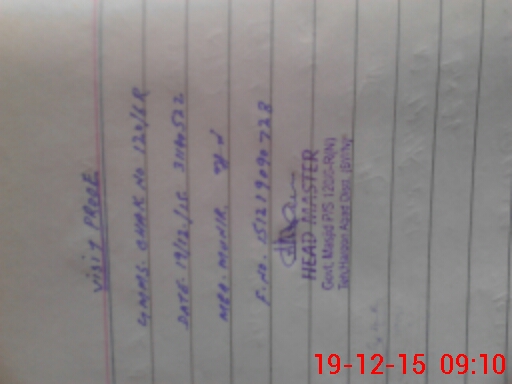 VISIT PROOF
GMMS. CHAK NO 120/6R
DATE 19/12/15 31140522
MEO. MUNIR.
F. NO. 151219090728
HEAD MASTER
Govt. Masjid P/S 120/6-R(N)
Teh: Haroon Abad Distt. (BWN)
19-12-15 09:10